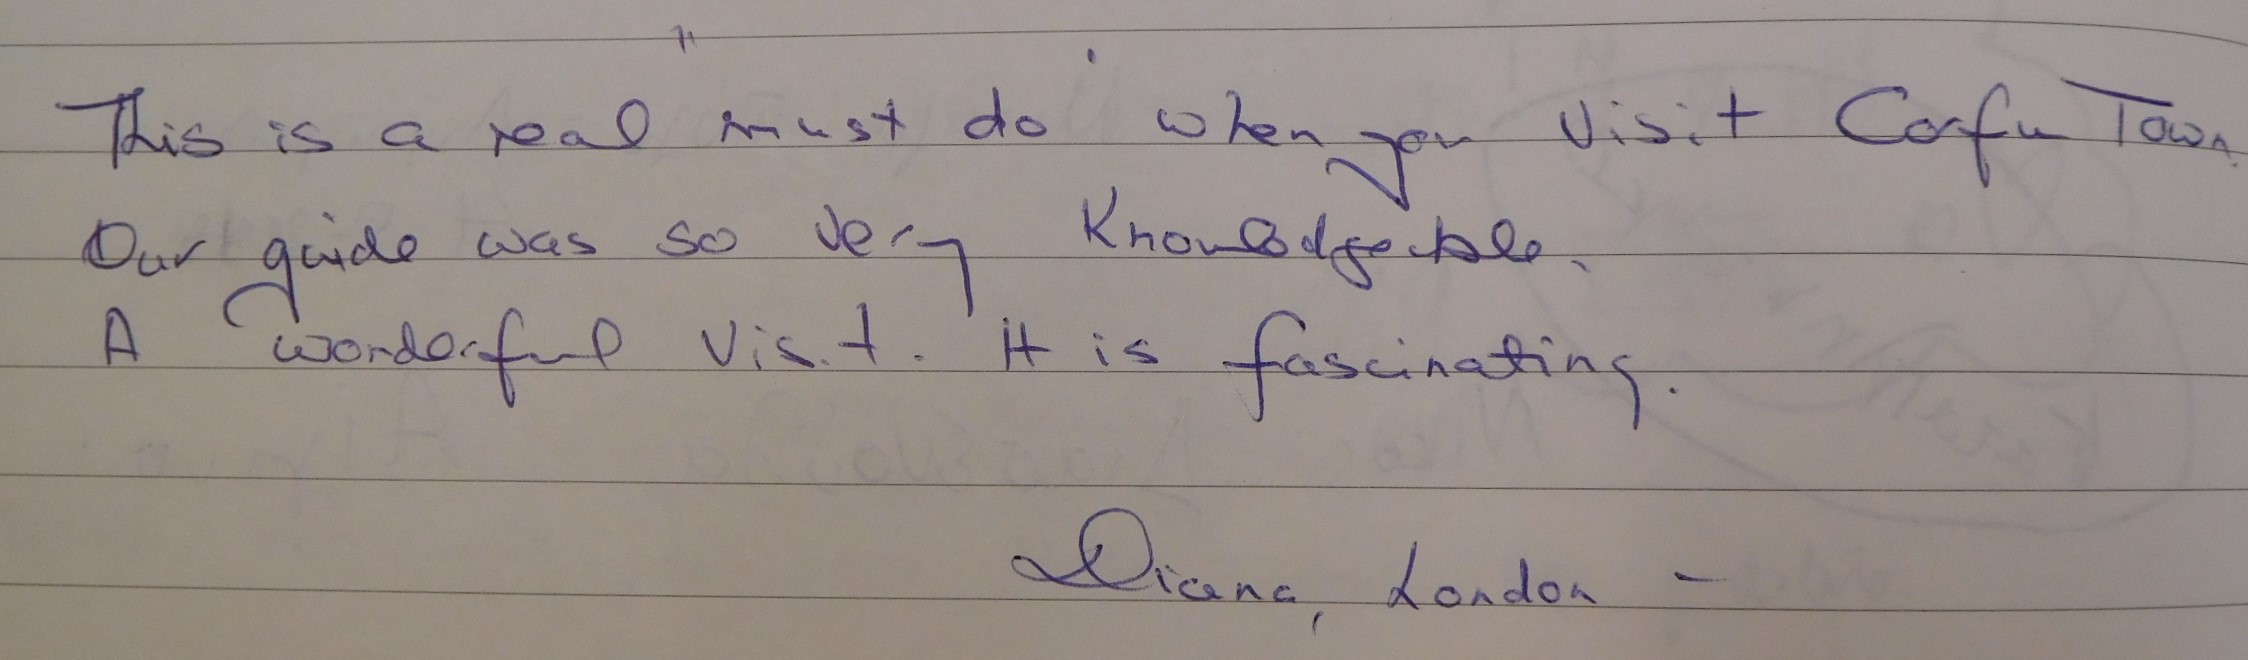 This is a real "must do" when you visit Corfu Town.
Our guide was so very Knowledgeable.
A wonderful visit. It is fascinating.
Diana, London -